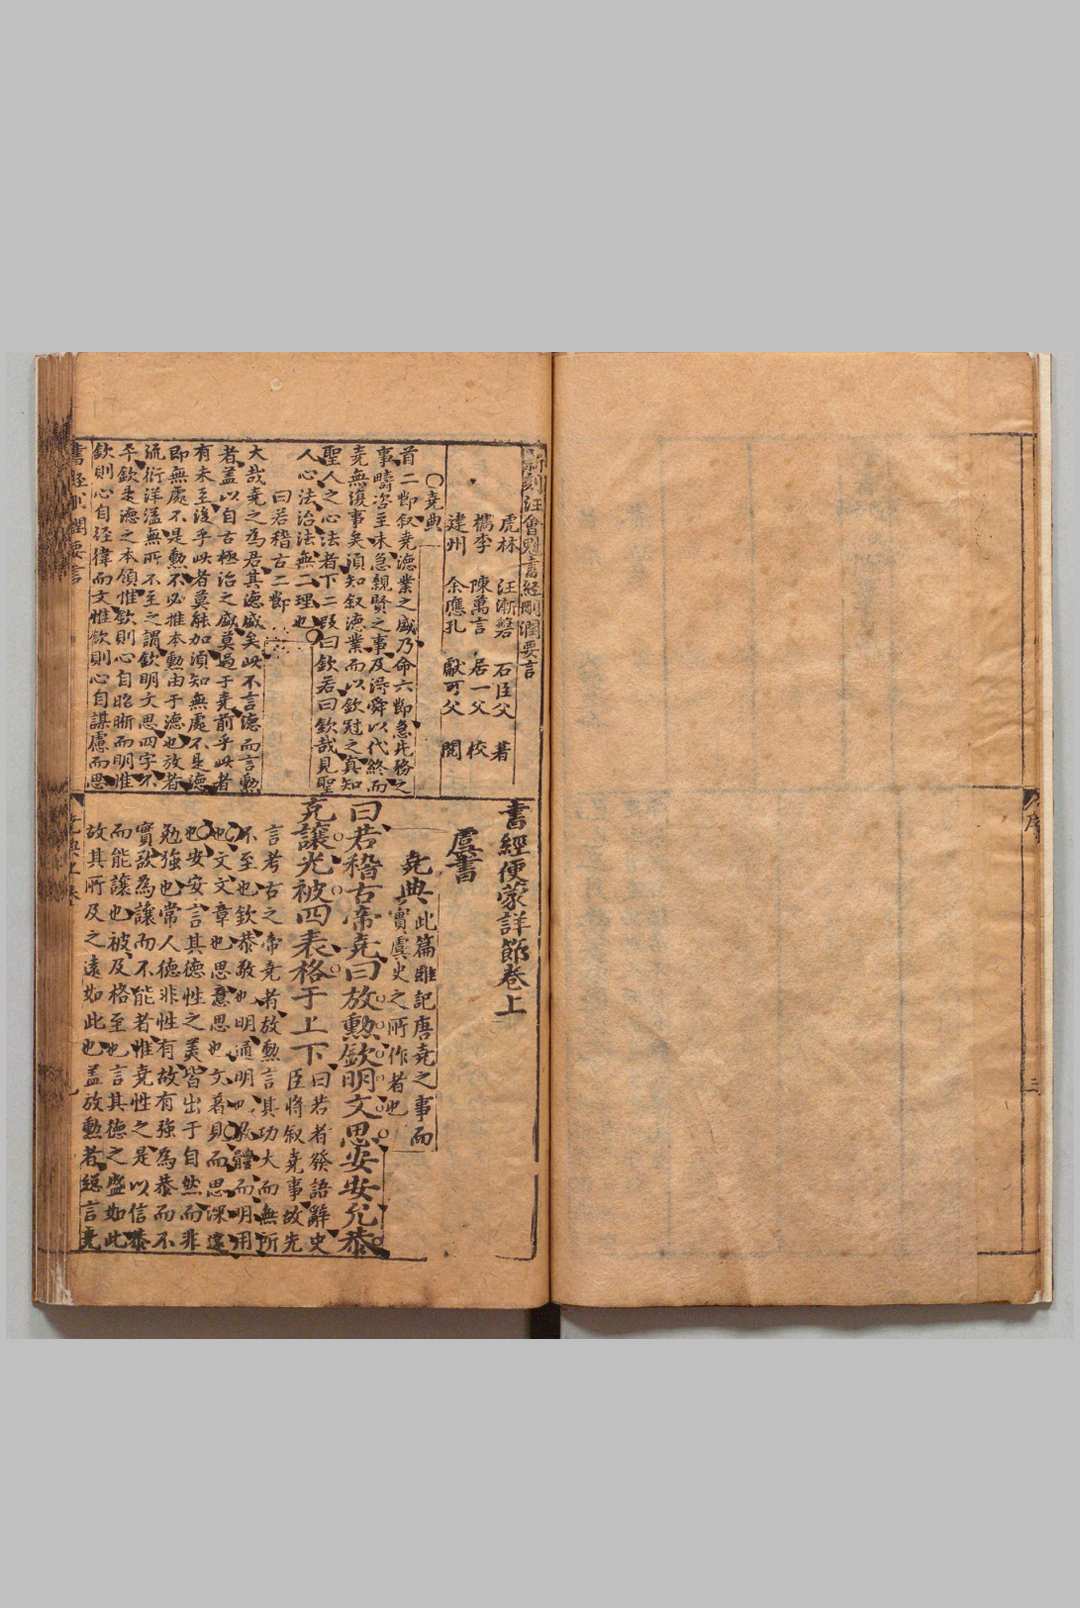 新刻汪會魁書經刪潤要言
虎林 汪漸磐 石臣父 著
檇李 陳萬言 居一父 校
建州 余應孔 獻可父 閱
○堯典
首二節叙堯德業之盛乃命六節急先務之
事疇咨至末急親賢之事及得舜以代終而
堯無復事矣須知叙德業而以欽冠之真知
聖人之心法者下二段曰欽若曰欽哉見聖
人心法治法無二理也○
曰若稽古二節
大哉堯之為君其德盛矣此不言德而言勳
者盖以自古極治之盛莫過于堯前乎此者
有未至後乎此者莫能加須知無處不是德
即無處不是勳不必推本勳由于德也放者
流衍洋溢無所不至之謂欽明文思四字不
平欽是德之本領惟欽則心自昭晰而明惟
欽則心自經緯而文惟欽則心自謀慮而思
書經刪潤要言
書經便蒙詳節卷上
虞書
堯典 此篇雖記唐堯之事而
實虞史之所作者也
曰若稽古帝堯曰放勳欽明文思安安允恭
克讓光被四表格于上下 曰若者發語辭史
臣將叙堯事故先
言考古之帝堯者放勳言其功大而無所
不至也欽恭敬也明通明也敬體而明用
也文文章也思意思也文著見而思深遠
也安安言其德性之美皆出于自然而非
勉強也常人德非性有故有強為恭而不
實欲為讓而不能者惟堯性之是以信恭
而能讓也被及格至也言其德之盛如此
故其所及之遠如此也盖放勳者總言堯
堯典上卷
序
三